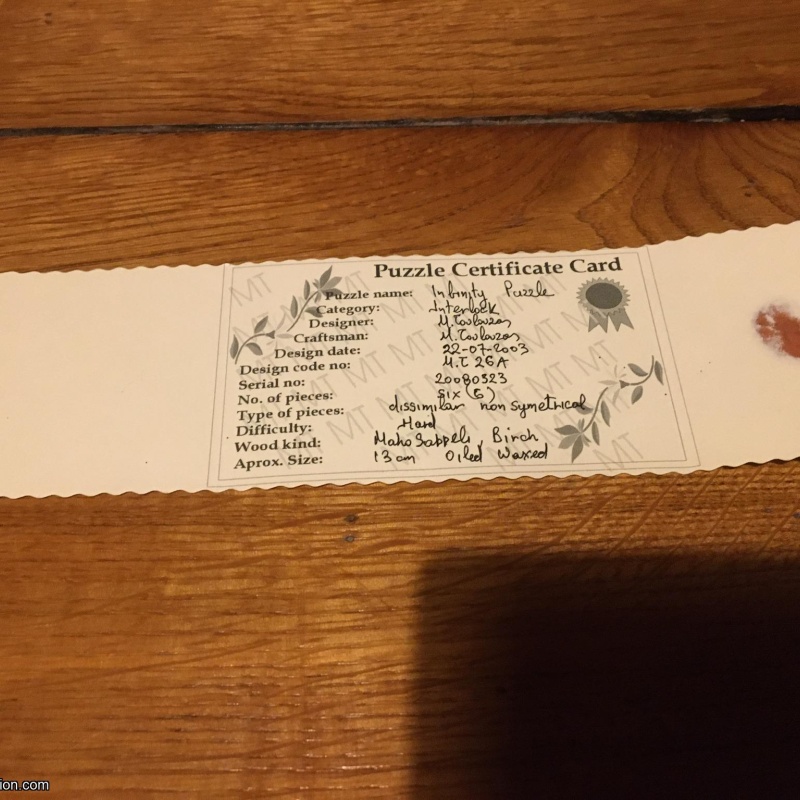 Puzzle Certificate Card
Puzzle name: Infinity Puzzle
Category: Interlock
Designer: M.Toulouzas
Craftsman: M.Toulouzas
Design date: 22-07-2003
Design code no: M.T 26A
Serial no: 20080523
No. of pieces: six (6)
Type of pieces: dissimilar non symetrical
Difficulty: Hard
Wood kind: Maho Sappeli, Birch
Aprox. Size: 13 cm Oiled Waxed
MT MT MT MT MT
ion.com